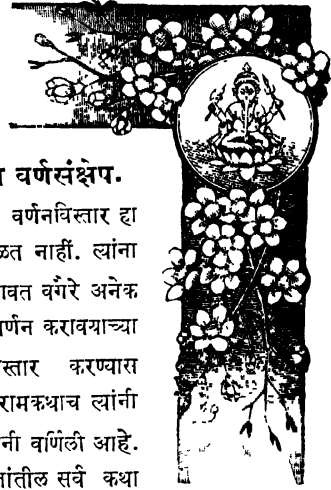 वर्णसंक्षेप.
वर्णनविस्तार हा
नाहीं. त्यांना
वगैरे अनेक
करावयाच्या
करण्यास
रामकथाच त्यांनी
वर्णिली आहे.
सर्व कथा